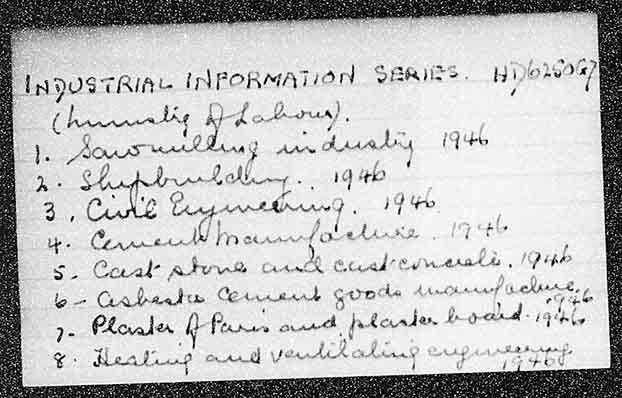 INDUSTRIAL INFORMATION SERIES. HD6250G7
(Ministry of Labour).
1. Sawmilling industry 1946
2. Shipbuilding. 1946
3. Civil Engineering. 1946
4. Cement Manufacture. 1946
5- Cast stone and cast-concrete. 1946
6- Asbestos Cement goods manufacture.
1946
7- Plaster of Paris and plaster board. 1946
8. Heating and ventilating engineering
1946